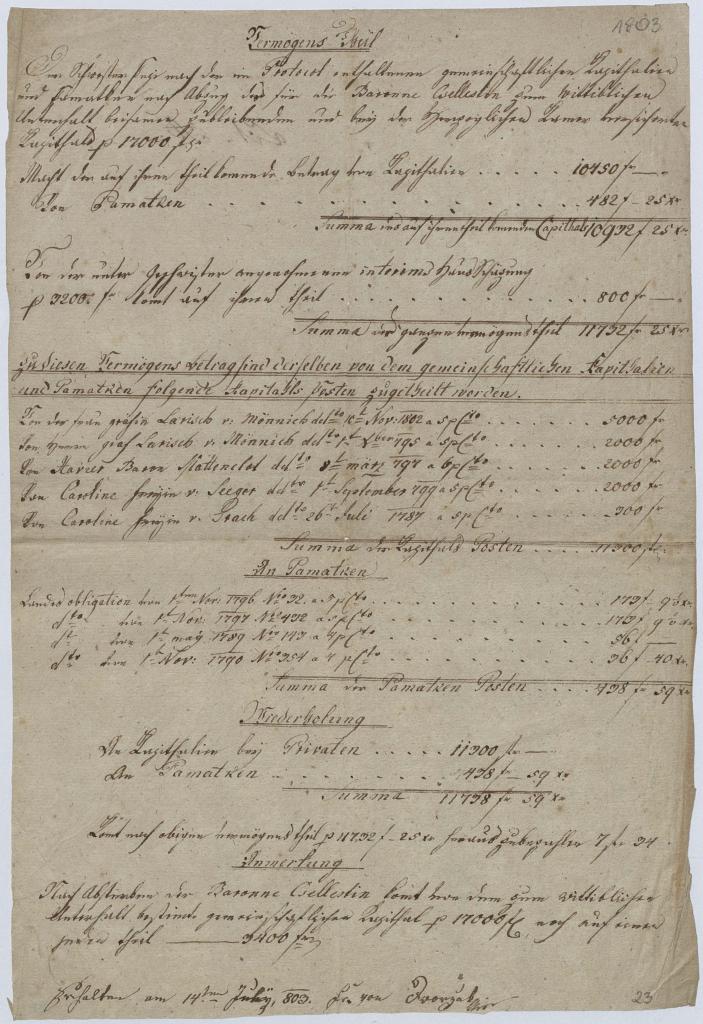 1803
Vermögens Theil
Der Schwester Sefi nach den im Protocol enthaltenen gemeinschaftlichen Kapithalien
und Pamatken nach Abzug des für die Baronne Cselestin zum Wittiblichen
Unterhalt beisamen zubleibenden und beij der Herzoglichen Kamer versicherten
Kapithals p 17000 f
Macht der auf ihren theil komende betrag von Kapithalien . . . . . 10450 fr —
Von Pamatken . . . . . . . . . . 482 f — 25 xr
Summa des auf ihren theil komenden Capithals 10932 f 25 xr
Von der unter Geschwister angenohmenen interims Haus Schäzung
p 3200 fr komt auf ihren theil . . . . . . . . . 800 fr —
Summa des ganzen vermögens theil 11732 fr 25 xr
Zu diesen Vermögens betrag sind derselben von dem gemeinschaftlichen Kapithalien
und Pamatken folgende Kapitahls Posten zugetheilt worden.
Von der frau gräfin Larisch v: Mönnich dtto 1t Nov: 1802 a 5 pCto . . . . . 5000 fr
Von Herrn graf Larisch v: Mönnich dtto 1t Xber 795 a 5 pCto . . . . . 2000 fr
Von Xavier Baron Mattenclot dtto 8t märz 797 a 6 pCto . . . . . 2000 fr
Von Caroline freyin v: Seeger dtto 1t September 799 a 5 pCto . . . . . 2000 fr
Von Caroline freyin v: Trach dtto 26t Juli 1787 a 5 pCto . . . . . 300 fr
Summa der Kapithals Posten . . . . 11300 fr
An Pamatken
Landes obligation von 1ten Nov: 1796 No 32. a 5 pCto . . . . . 173 f — 9 xr
dtto von 1t Nov: 1797 No 432 a 5 pCto . . . . . 173 f 9 xr
dt von 1t maij 1789 No 143 a 4 pCto . . . . . 56 f
dtto von 1t Nov: 1790 No 354 a 4 pCto . . . . . 36 f 40 xr
Summa der Pamatken Posten . . . . 438 f 59 xr
Wiederholung
An Kapithalien beij Privaten . . . . . 11300 fr —
An Pamatken . . . . . . . 438 f — 59 xr
Summa 11738 fr 59 xr
Komt nach obigen vermögens theil p 11732 f — 25 xr herauszubezahlen 7 fr 34
Anmerkung
Nach Absterben der Baronne Cselestin komt von dem zum Wittiblichen
Unterhalt bestimten gemeinschaftlichen Kapithal p 17000 f noch auf einen
jeden theil — 3400 fr
Erhalten am 14ten Julij 803. von Dworzak
23